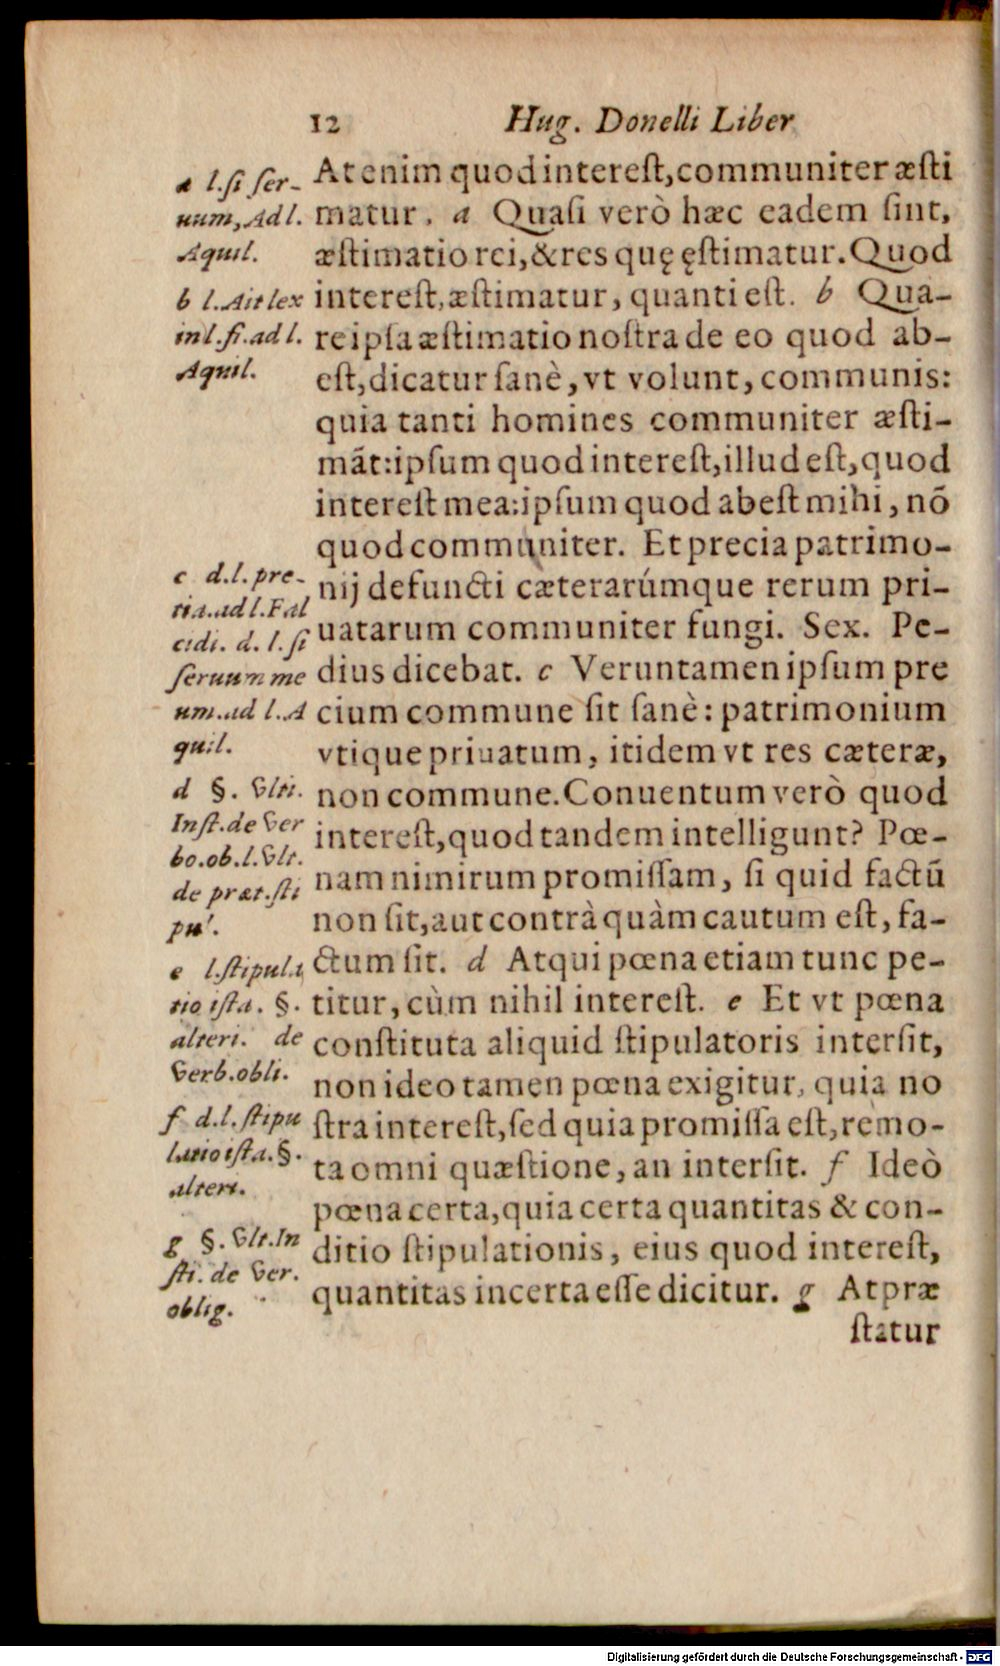 12 Hug. Donelli Liber
At enim quod interest, communiter æsti
matur. a Quasi verò hæc eadem sint,
æstimatio rei, & res quę ęstimatur. Quod
interest, æstimatur, quanti est. b Qua-
re ipsa æstimatio nostra de eo quod ab-
est, dicatur sanè, vt volunt, communis:
quia tanti homines communiter æsti-
māt: ipsum quod interest, illud est, quod
interest mea: ipsum quod abest mihi, nō
quod communiter. Et precia patrimo-
nij defuncti cæterarúmque rerum pri-
uatarum communiter fungi. Sex. Pe-
dius dicebat. c Veruntamen ipsum pre
cium commune sit sanè: patrimonium
vtique priuatum, itidem vt res cæteræ,
non commune. Conuentum verò quod
interest, quod tandem intelligunt? Pœ-
nam nimirum promissam, si quid factū
non sit, aut contrà quàm cautum est, fa-
ctum sit. d Atqui pœna etiam tunc pe-
titur, cùm nihil interest. e Et vt pœna
constituta aliquid stipulatoris intersit,
non ideo tamen pœna exigitur, quia no
stra interest, sed quia promissa est, remo-
ta omni quæstione, an intersit. f Ideò
pœna certa, quia certa quantitas & con-
ditio stipulationis, eius quod interest,
quantitas incerta esse dicitur. g At præ
statur
a l. si ser-
uum, Ad l.
Aquil.
b l. Ait lex
in l. fi. ad l.
Aquil.
c d. l. pre-
tia. ad l. Fal
cidi. d. l. si
seruum me
um. ad l. A
quil.
d §. vlti.
Inst. de ver
bo. ob. l. vlt.
de præt. sti
pu'.
e l. stipula
tio ista. §.
alteri. de
verb. obli.
f d. l. stipu
latio ista. §.
alteri.
g §. vlt. In
sti. de ver.
oblig.
Digitalisierung gefördert durch die Deutsche Forschungsgemeinschaft - DFG